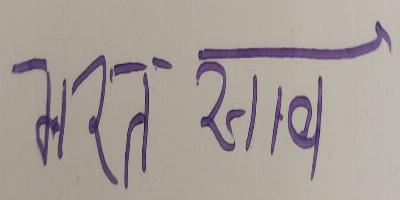 भरत साव